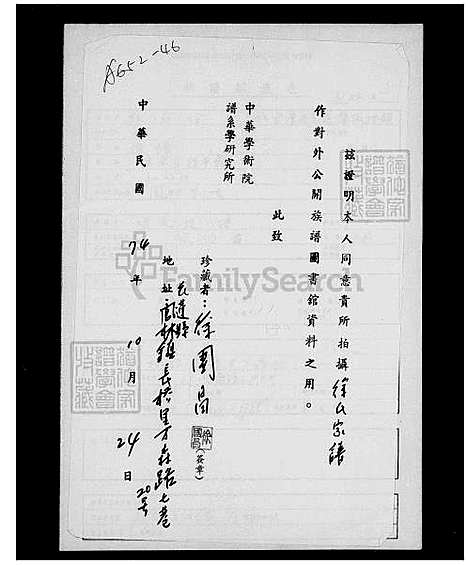 A652-46
茲證明本人同意貴所拍攝徐氏家譜
作對外公開族譜圖書館資料之用。
此致
中華學術院
譜系學研究所
珍藏者：徐國昌（簽章）
地址
長榜里
路七巷
20号
中華民國74年10月24日
FamilySearch